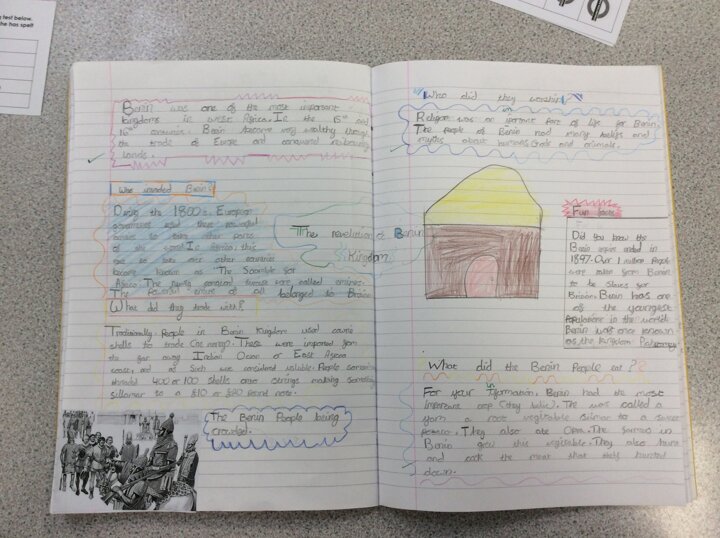 Benin was one of the most important
kingdoms in west Africa. In the 15th and
16th centuries. Benin became very wealthy through
the trade of Europe and conquered
lands.
Who invaded Benin?
During the 1800s, European
governments used there powerful
to take other parts
of the world. In Africa, this
over other countries
became known as The Scramble for
Africa. The newly conquered were called empires.
The Powerful empire of all belonged to Britain
The revelution of Benun
Kingdom
What did they trade with?
Traditionally People in Benin Kingdom used cowrie
shells to trade . These were imported from
the far away Indian Ocean or East African
coast, and as such were considered valuble. People
thread 400 or 100 shells onto strings making something
to a £10 or £20 Pound note.
The Benin People being
crowded.
Who did they worship
Religion was an part of life for Benin.
The People of Benin had many beliefs and
myths about humans, Gods and animals.
Fun facts
Did you know the
Benin empire ended in
1897. Over 1 million People
were taken from Benin
to be slaves for
Britain. Benin has one
of the youngest
Populations in the world.
Benin was once known
as the kingdom
What did the Benin People eat?
For your information, Benin had the most
important crop (they belive). The was called a
yam a root vegitable similar to a sweet
potato. They also ate Okra. The farmes in
Benin grew this vegitable. They also hunt
and cook the meat that they hunted
down.